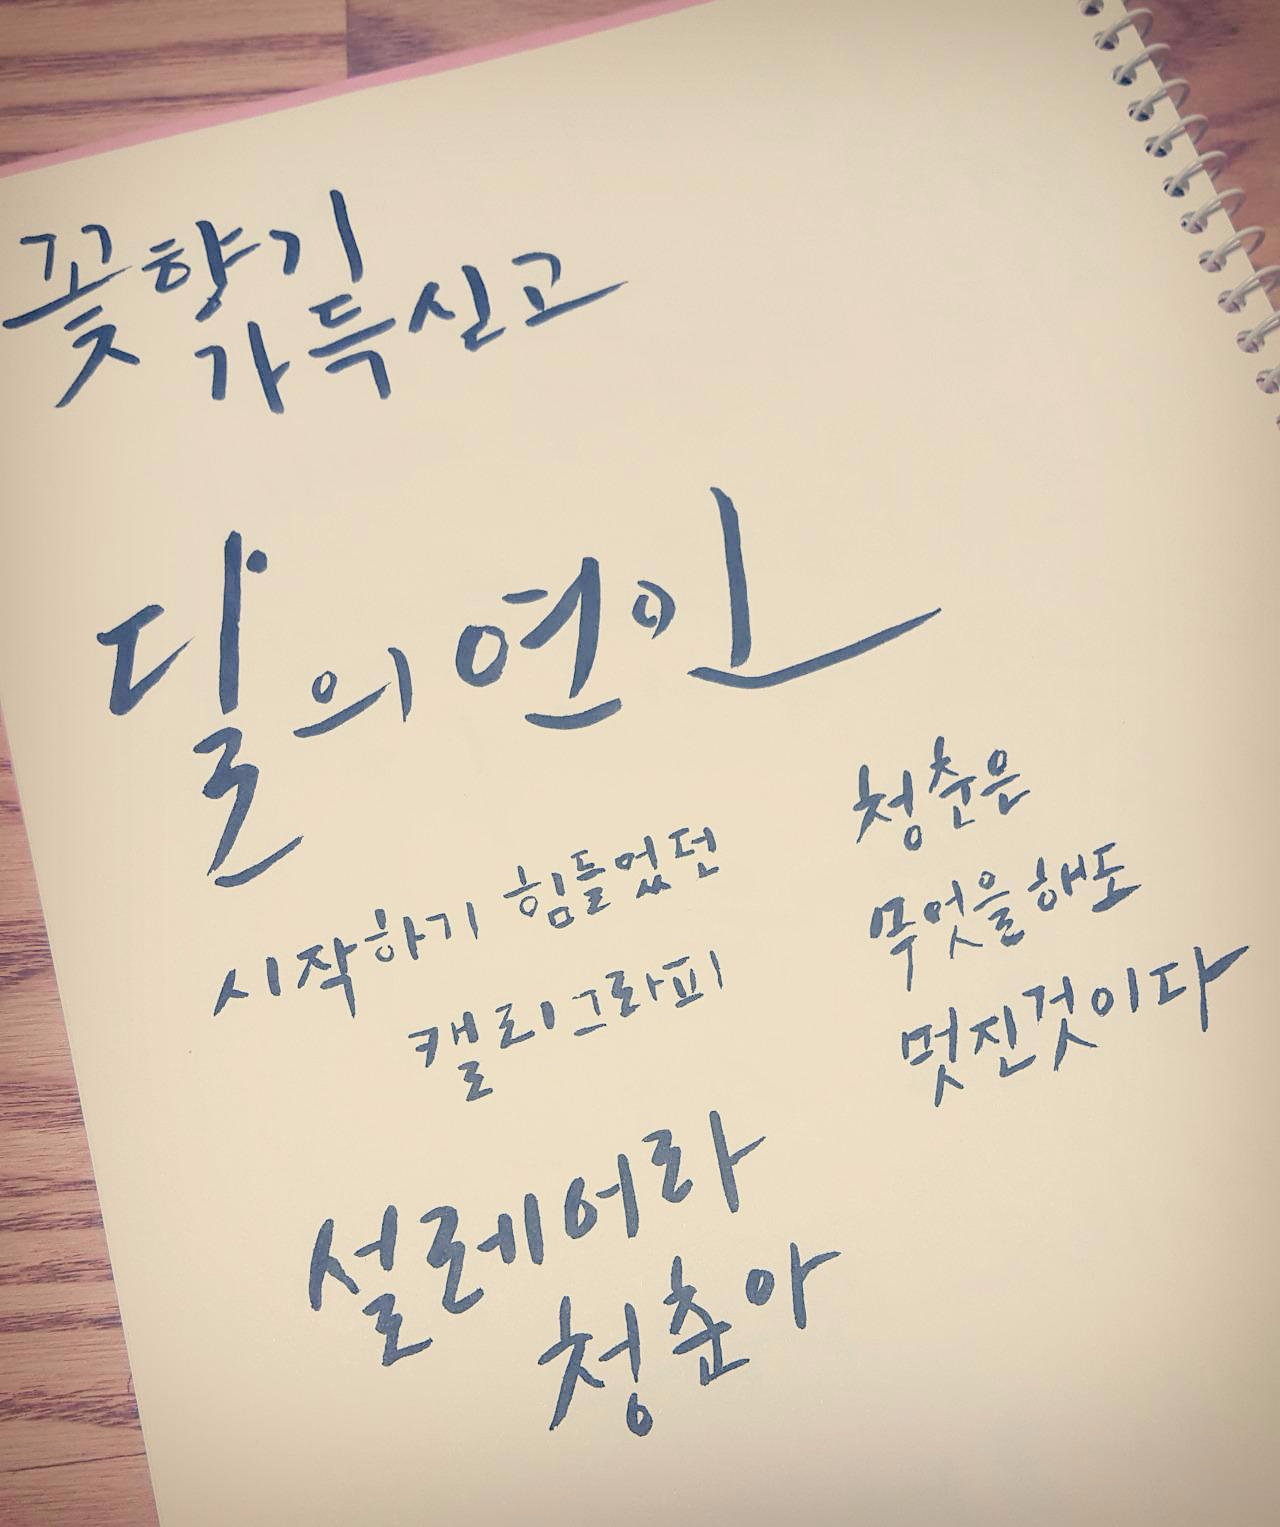 꽃향기
가득싣고
달의 연인
시작하기 힘들었던
캘리그라피
청춘은
무엇을해도
멋진것이다
설레어라
청춘아